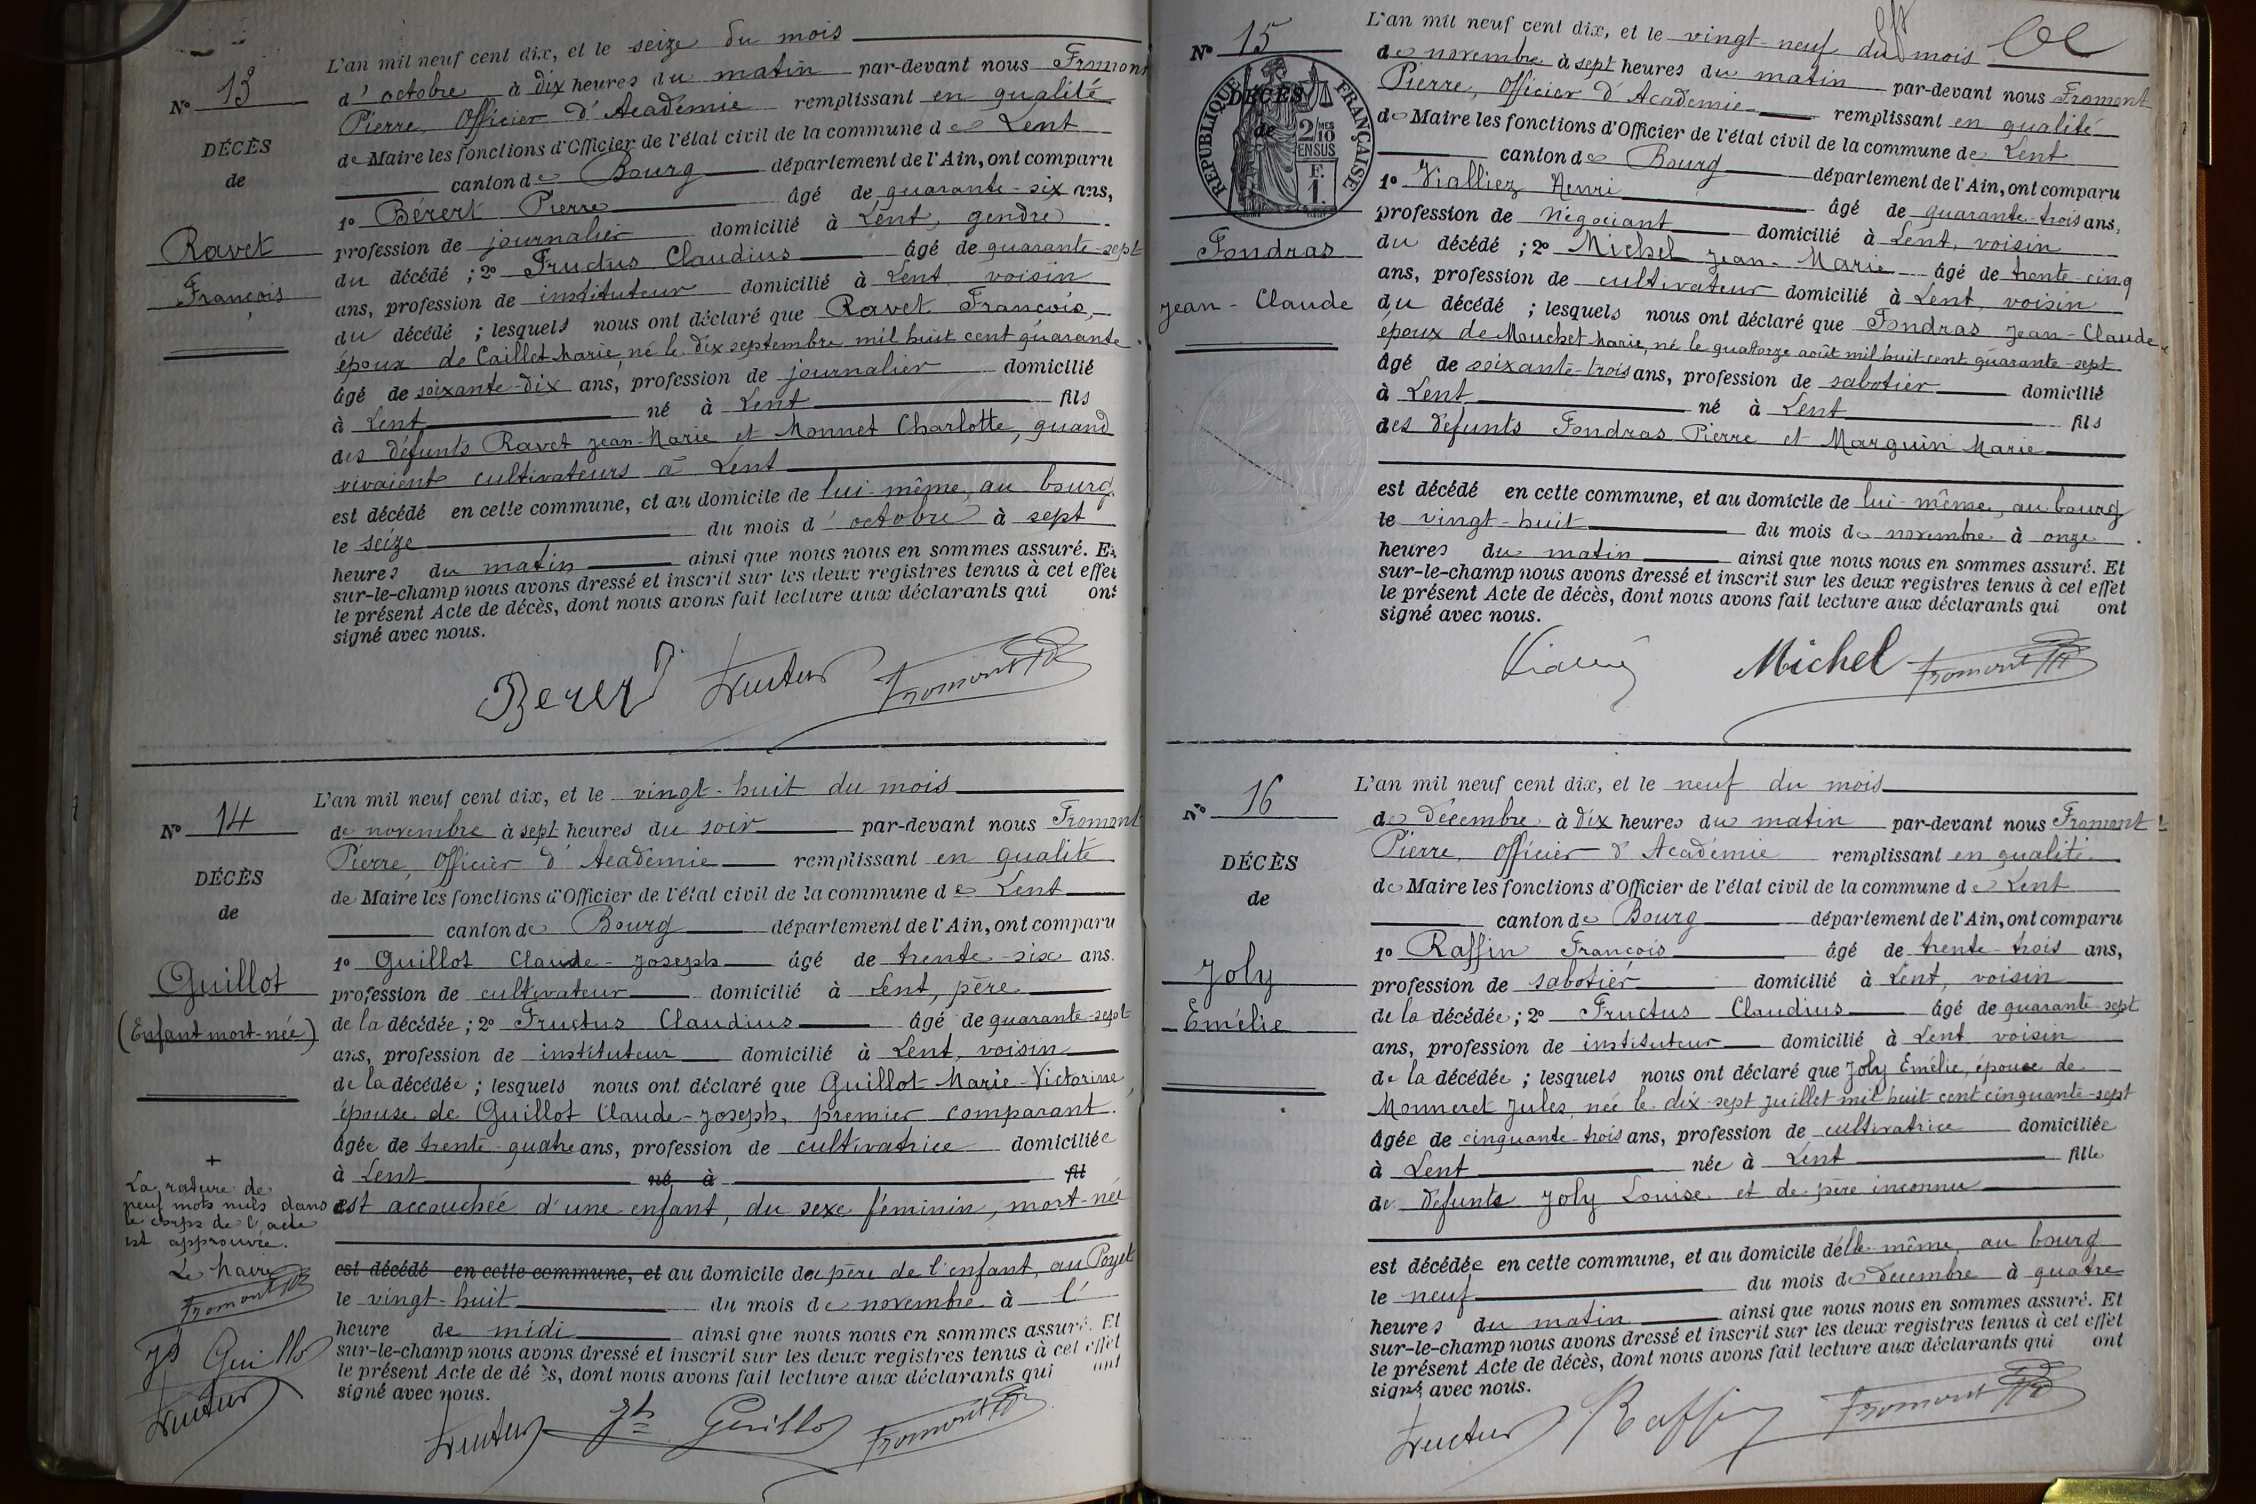 N° 13
DÉCÈS
de
Ravet
François
L'an mil neuf cent dix, et le seize du mois
d'octobre à dix heures du matin par-devant nous Fromont
Pierre, Officier d'Académie remplissant en qualité
de Maire les fonctions d'Officier de l'état civil de la commune de Lent
canton de Bourg département de l'Ain, ont comparu
1° Bérert Pierre âgé de quarante-six ans,
profession de journalier domicilié à Lent, gendre
du décédé ; 2° Fructus Claudius âgé de quarante-sept
ans, profession de instituteur domicilié à Lent voisin
du décédé ; lesquels nous ont déclaré que Ravet François,
époux de Caillet Marie, né le dix septembre mil huit cent quarante
âgé de soixante-dix ans, profession de journalier domicilié
à Lent né à Lent fils
des défunts Ravet Jean-Marie et Monnet Charlotte, quand
vivaient cultivateurs à Lent
est décédé en cette commune, et au domicile de lui-même, au bourg
le seize du mois d'octobre à sept
heures du matin ainsi que nous nous en sommes assuré. Et
sur-le-champ nous avons dressé et inscrit sur les deux registres tenus à cet effet
le présent Acte de décès, dont nous avons fait lecture aux déclarants qui ont
signé avec nous.
Berert Fructus Fromont
N° 14
DÉCÈS
de
Guillot
(Enfant mort-née)
L'an mil neuf cent dix, et le vingt-huit du mois
de novembre à sept heures du soir par-devant nous Fromont
Pierre, Officier d'Académie remplissant en qualité
de Maire les fonctions d'Officier de l'état civil de la commune de Lent
canton de Bourg département de l'Ain, ont comparu
1° Guillot Claude-Joseph âgé de trente-six ans.
profession de cultivateur domicilié à Lent, père
de la décédée ; 2° Fructus Claudius âgé de quarante-sept
ans, profession de instituteur domicilié à Lent, voisin
de la décédée ; lesquels nous ont déclaré que Guillot Marie-Victorine,
épouse de Guillot Claude-Joseph, premier comparant.
âgée de trente-quatre ans, profession de cultivatrice domiciliée
à Lent né à fil
est accouchée d'une enfant, du sexe féminin, mort-née
est décédé en cette commune, et au domicile du père de l'enfant, au Poyet
le vingt-huit du mois de novembre à l'
heure de midi ainsi que nous nous en sommes assuré. Et
sur-le-champ nous avons dressé et inscrit sur les deux registres tenus à cet effet
le présent Acte de décès, dont nous avons fait lecture aux déclarants qui ont
signé avec nous.
+
La rature de
neuf mots nuls dans
le corps de l'acte
est approuvée.
Le Maire
Fromont
Jh Guillot
Fructus
Fructus Jh Guillot Fromont
N° 15
RÉPUBLIQUE FRANÇAISE
2/10 MES
EN SUS
F.
1.
DÉCÈS
de
Fondras
Jean-Claude
L'an mil neuf cent dix, et le vingt-neuf du mois
de novembre à sept heures du matin par-devant nous Fromont
Pierre, Officier d'Académie remplissant en qualité
de Maire les fonctions d'Officier de l'état civil de la commune de Lent
canton de Bourg département de l'Ain, ont comparu
1° Vialliez Henri âgé de quarante-trois ans,
profession de négociant domicilié à Lent, voisin
du décédé ; 2° Michel Jean-Marie âgé de trente-cinq
ans, profession de cultivateur domicilié à Lent, voisin
du décédé ; lesquels nous ont déclaré que Fondras Jean-Claude
époux de Mouchet Marie, né le quatorze août mil huit cent quarante-sept
âgé de soixante-trois ans, profession de sabotier domicilié
à Lent né à Lent fils
des défunts Fondras Pierre et Marguin Marie
est décédé en cette commune, et au domicile de lui-même, au bourg
le vingt-huit du mois de novembre à onze
heures du matin ainsi que nous nous en sommes assuré. Et
sur-le-champ nous avons dressé et inscrit sur les deux registres tenus à cet effet
le présent Acte de décès, dont nous avons fait lecture aux déclarants qui ont
signé avec nous.
Michel Fromont
N° 16
DÉCÈS
de
Joly
Emélie
L'an mil neuf cent dix, et le neuf du mois
de décembre à dix heures du matin par-devant nous Fromont
Pierre, Officier d'Académie remplissant en qualité
de Maire les fonctions d'Officier de l'état civil de la commune de Lent
canton de Bourg département de l'Ain, ont comparu
1° Raffin François âgé de trente-trois ans,
profession de sabotier domicilié à Lent, voisin
de la décédée ; 2° Fructus Claudius âgé de quarante-sept
ans, profession de instituteur domicilié à Lent voisin
de la décédée ; lesquels nous ont déclaré que Joly Emélie, épouse de
Monneret Jules, née le dix-sept juillet mil huit cent cinquante-sept
âgée de cinquante-trois ans, profession de cultivatrice domiciliée
à Lent née à Lent fille
de défunte Joly Louise et de père inconnu
est décédée en cette commune, et au domicile d'elle-même, au bourg
le neuf du mois de décembre à quatre
heures du matin ainsi que nous nous en sommes assuré. Et
sur-le-champ nous avons dressé et inscrit sur les deux registres tenus à cet effet
le présent Acte de décès, dont nous avons fait lecture aux déclarants qui ont
signé avec nous.
Fructus Raffin Fromont